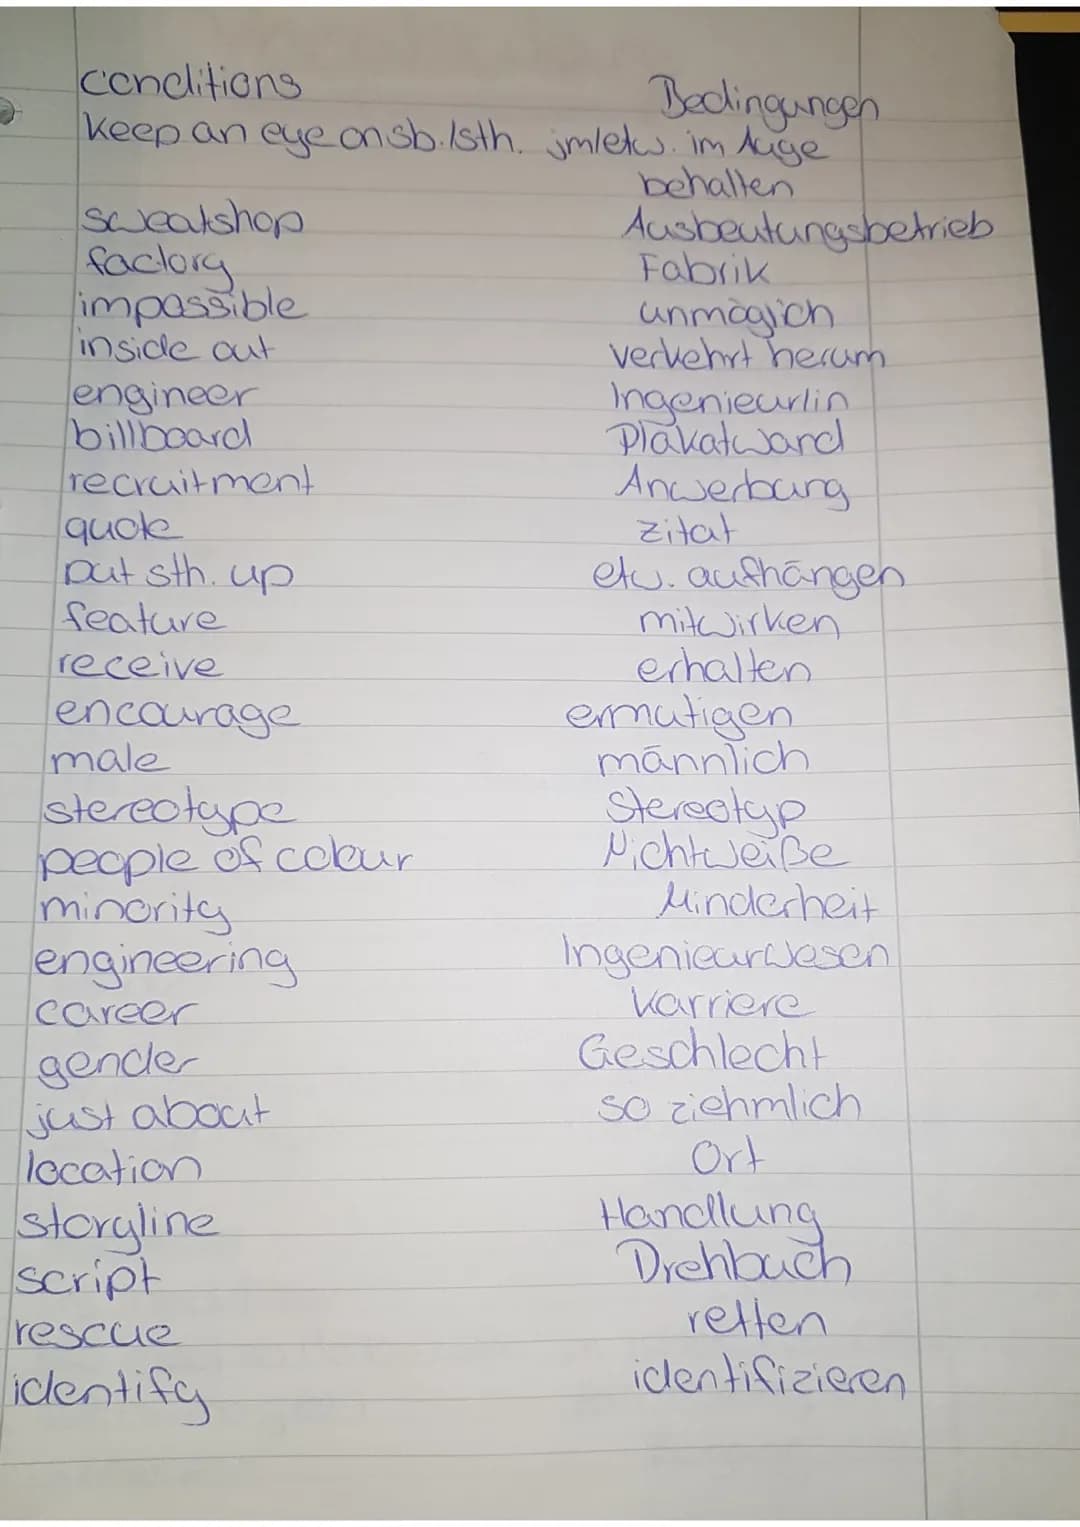 conditions Bedingungen
keep an eye on sb./sth. jm/etw. im Auge
behalten
sweatshop Ausbeutungsbetrieb
factory Fabrik
impossible unmöglich
inside out verkehrt herum
engineer Ingenieur/in
billboard Plakatward
recruitment Anwerbung
quote Zitat
put sth. up etw. aufhängen
feature mitwirken
receive erhalten
encourage ermutigen
male männlich
stereotype Stereotyp
people of colour Nichtweiße
minority Minderheit
engineering Ingenieurwesen
career Karriere
gender Geschlecht
just about so ziehmlich
location Ort
storyline Handlung
script Drehbuch
rescue retten
identify identifizieren